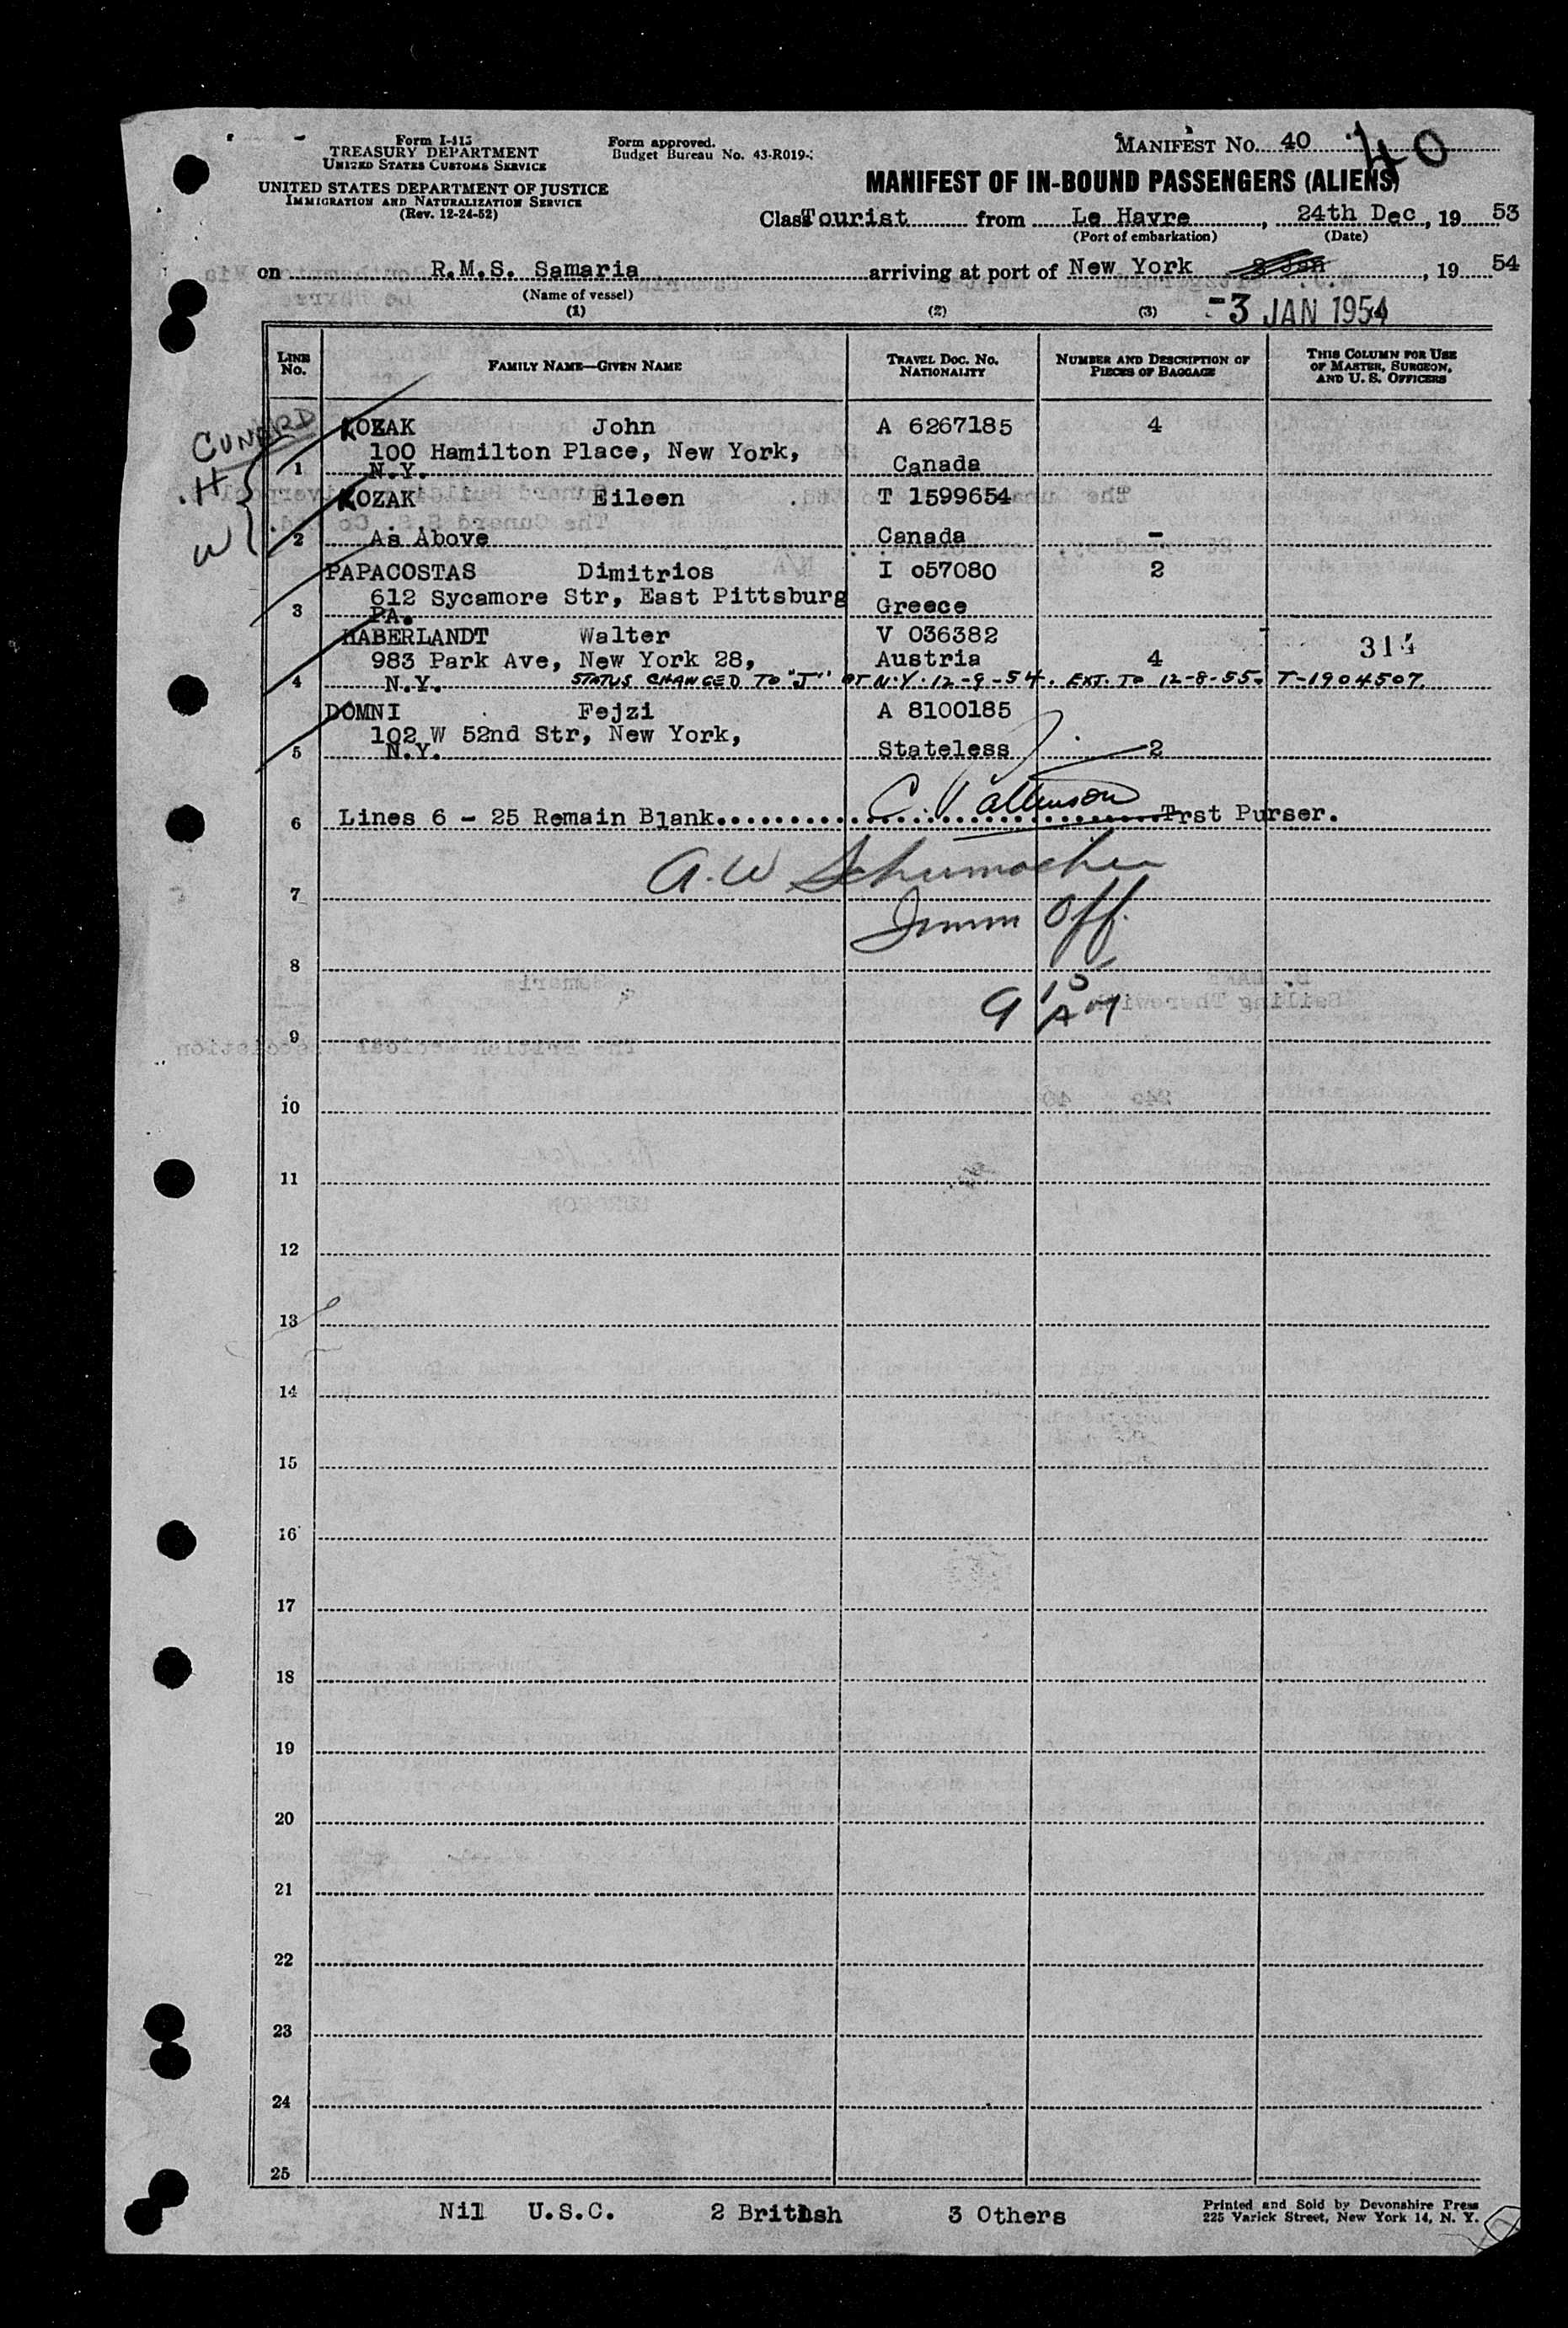 Form I-415
TREASURY DEPARTMENT
UNITED STATES CUSTOMS SERVICE
UNITED STATES DEPARTMENT OF JUSTICE
IMMIGRATION AND NATURALIZATION SERVICE
(Rev. 12-24-52)
Form approved.
Budget Bureau No. 43-R019-
MANIFEST No. 40
40
MANIFEST OF IN-BOUND PASSENGERS (ALIENS)
Class Tourist from Le Havre, 24th Dec, 19 53
(Port of embarkation) (Date)
on R.M.S. Samaria arriving at port of New York 3 Jan, 19 54
(Name of vessel)
-3 JAN 1954
(1) (2) (3)
LINE No. FAMILY NAME—GIVEN NAME TRAVEL DOC. NO. NATIONALITY NUMBER AND DESCRIPTION OF PIECES OF BAGGAGE THIS COLUMN FOR USE OF MASTER, SURGEON, AND U. S. OFFICERS
CUNARD
KOZAK John A 6267185 4
100 Hamilton Place, New York,
1 N.Y. Canada
H
KOZAK Eileen T 1599654
2 As Above Canada -
W
PAPACOSTAS Dimitrios I o57080 2
612 Sycamore Str, East Pittsburg
3 PA. Greece
HABERLANDT Walter V 036382
983 Park Ave, New York 28, Austria 4 314
4 N.Y. STATUS CHANGED TO "J" AT N.Y. 12-9-54. EXT. TO 12-8-55. T-1904507.
DOMNI Fejzi A 8100185
102 W 52nd Str, New York,
5 N.Y. Stateless 2
6 Lines 6 - 25 Remain Blank Trst Purser.
A. W Schumacher
7
Imm Off.
8
9 15 AM
9
10
11
12
13
14
15
16
17
18
19
20
21
22
23
24
25
Nil U.S.C. 2 British 3 Others
Printed and Sold by Devonshire Press
225 Varick Street, New York 14, N. Y.